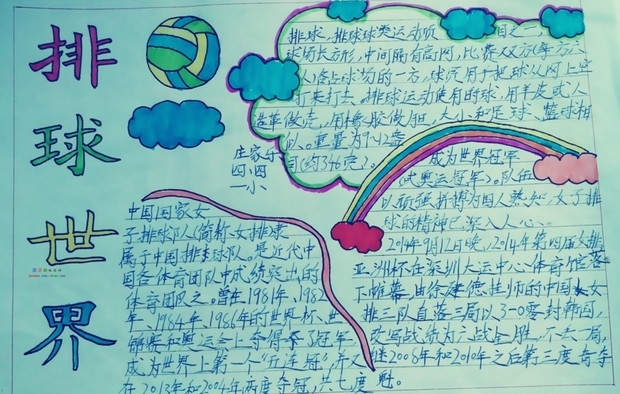 排球世界
排球、排球球类运动项目之一，
球场长方形，中间隔有高网，比赛双方(每方六
人)各占球场的一方，球员用手把球从网上空
打来打去。排球运动使用的球，用羊皮或人
造革做壳，用橡胶做胆，大小和足球、篮球相
似。重量为
庄家
四四
一小
成为世界冠军
(或奥运冠军)。队伍
以顽强拼搏为国人熟知，女子排
球的精神已深入人心。
2014年9月12日晚，2014年第四届女排
亚洲杯在深圳大运中心体育馆落
下帷幕，由徐建德挂帅的中国女
排三队直落三局以3-0零封韩国，
战绩为六战全胜，不丢一局，
继2008年和2010年之后第三度夺
中国国家女
子排球队(简称女排隶
属于中国排球队)。是近代中
国各体育团队中成绩突出的
体育团队之。曾在1981年、1982
年、1984年、1986年的世界杯、世
锦赛和奥运会上夺得冠军
成为世界上第一个“五连冠”，并又
在2013年和2004年两度夺冠，共七度冠。